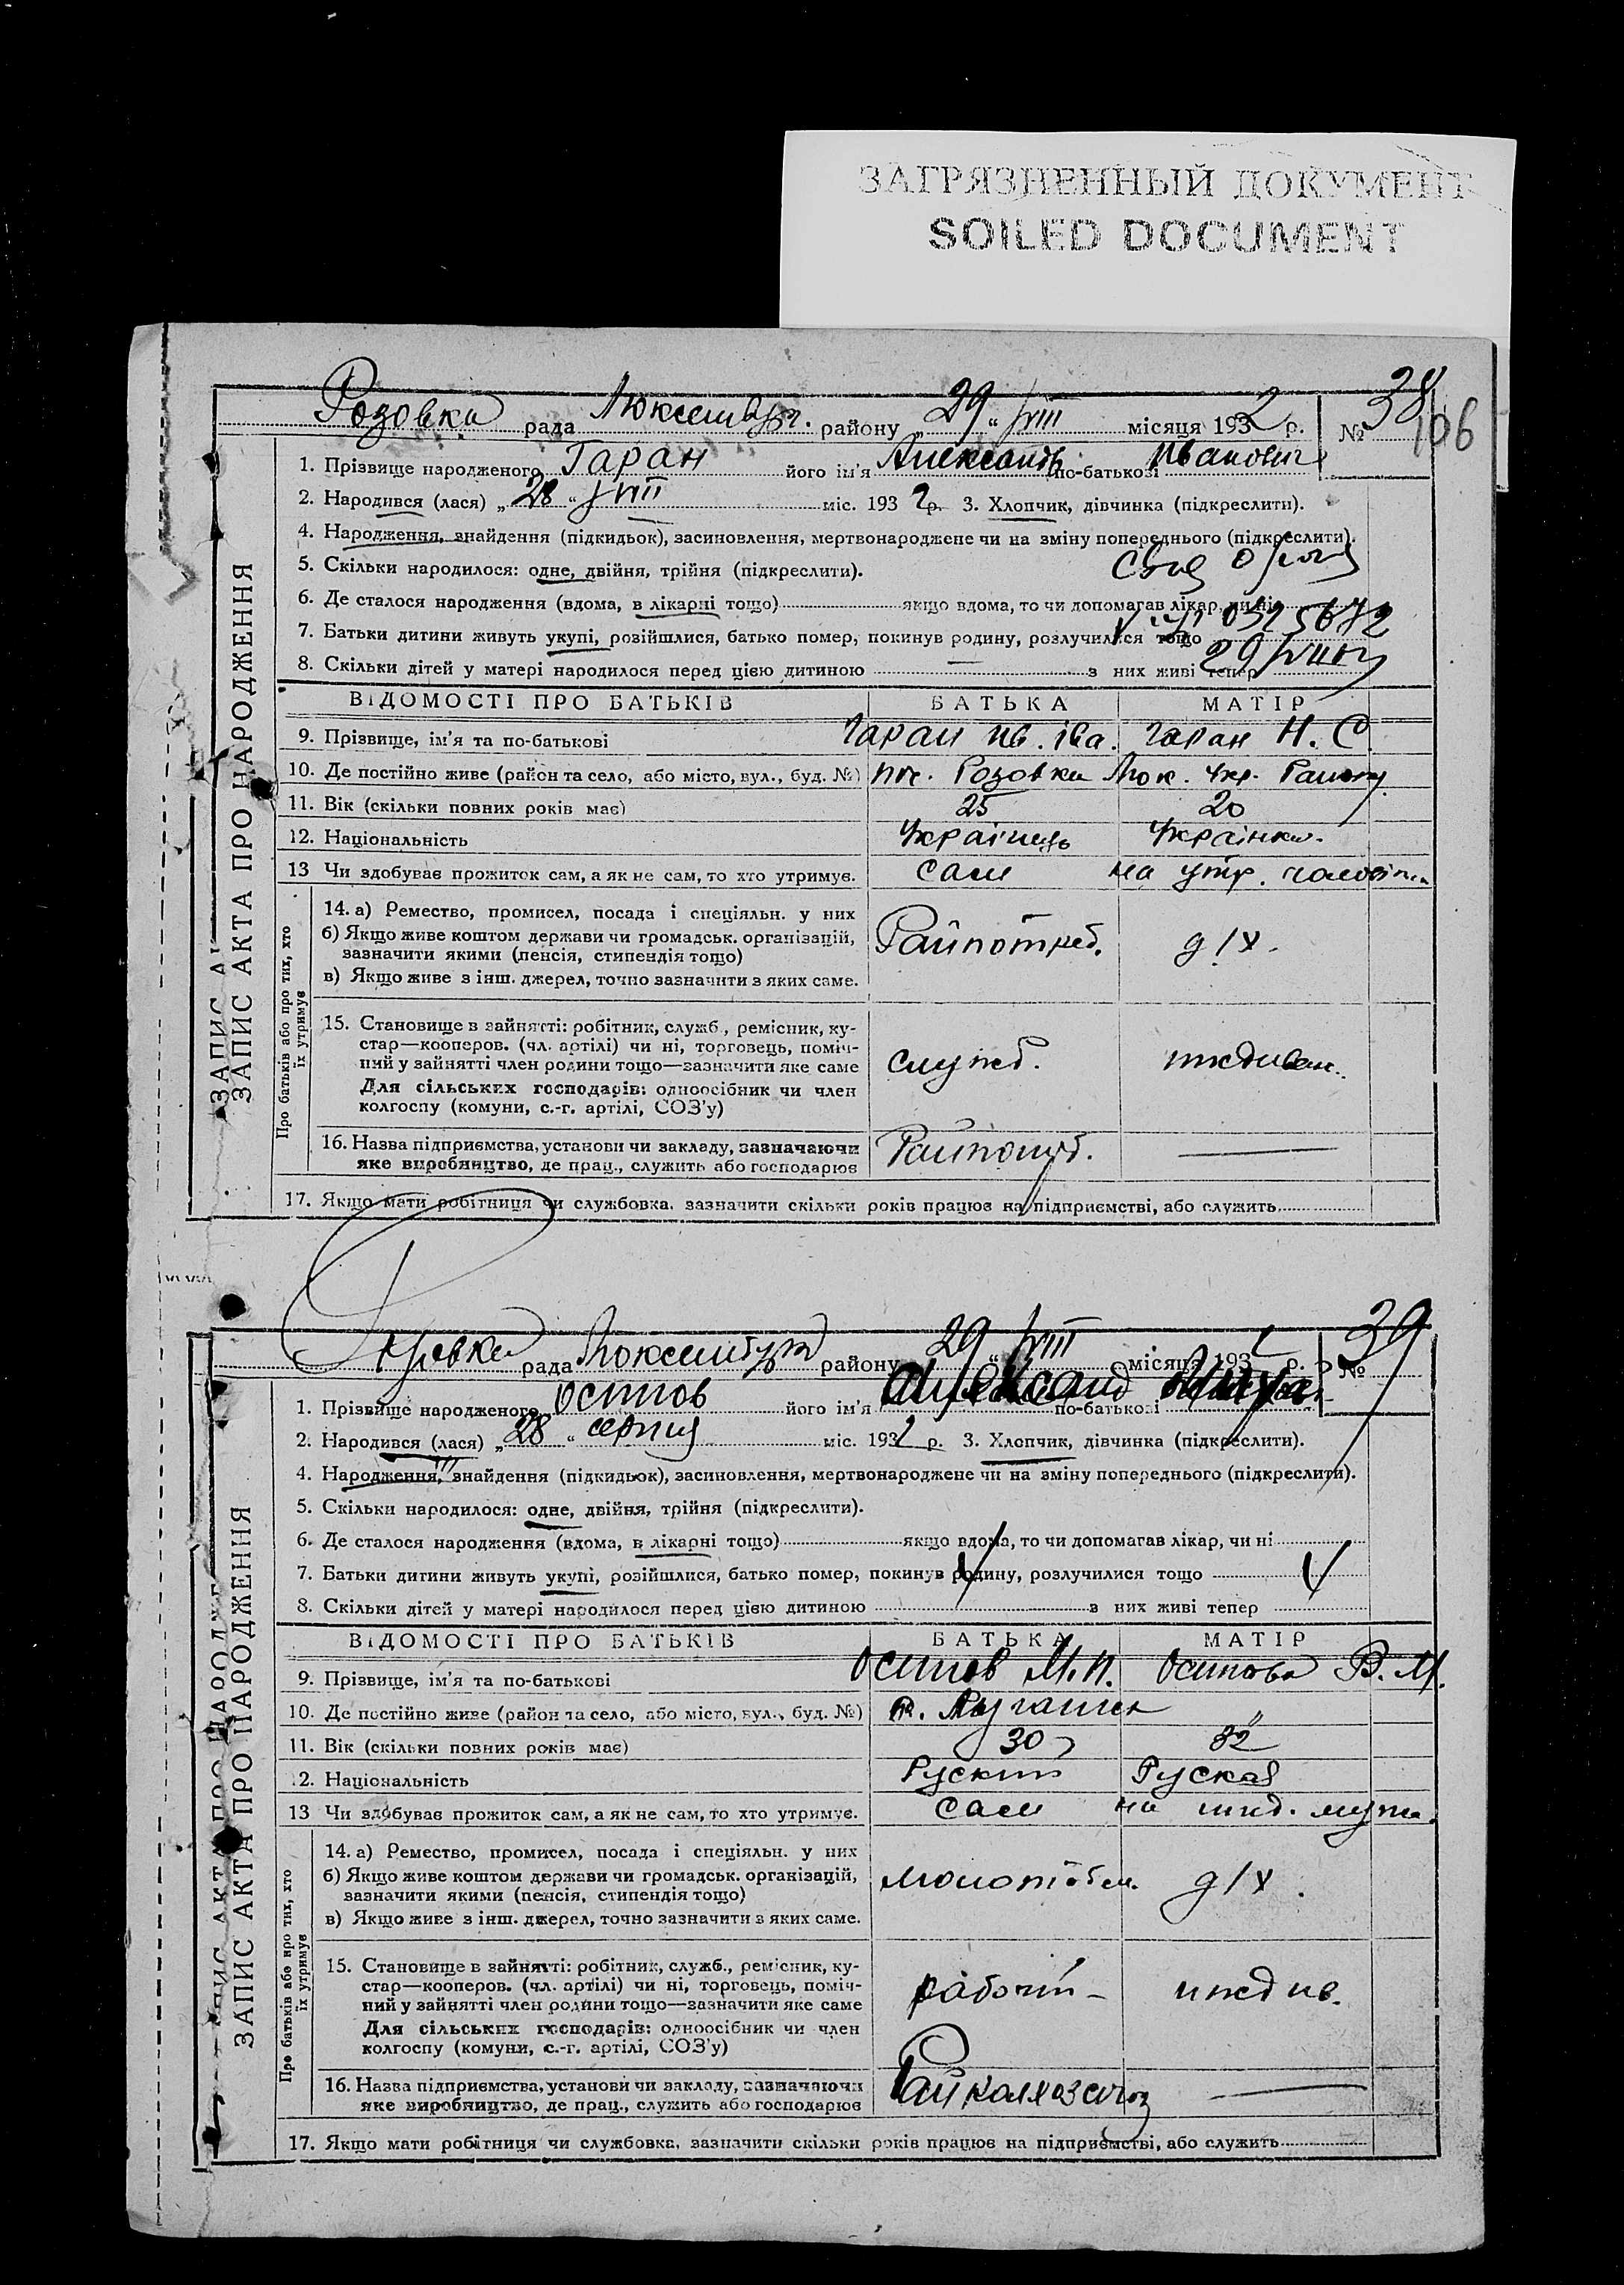 ЗАГРЯЗНЕННЫЙ ДОКУМЕНТ
SOILED DOCUMENT
38
106
Розовка рада Люксембург. району „ 29 “ VIII місяця 1932 р. №
1. Прізвище народженого Гаран його ім'я Александр по-батькові Иванович
2. Народився (лася) „ 28 “ VIII міс. 1932 р. 3. Хлопчик, дівчинка (підкреслити).
4. Народження, знайдення (підкидьок), засиновлення, мертвонароджене чи на зміну попереднього (підкреслити).
5. Скільки народилося: одне, двійня, трійня (підкреслити).
6. Де сталося народження (вдома, в лікарні тощо) якщо вдома, то чи допомагав лікар, чи ні
7. Батьки дитини живуть укупі, розійшлися, батько помер, покинув родину, розлучилися тощо
8. Скільки дітей у матері народилося перед цією дитиною — з них живі тепер
ЗАПИС АКТА ПРО НАРОДЖЕННЯ
ВІДОМОСТІ ПРО БАТЬКІВ БАТЬКА МАТІР
9. Прізвище, ім'я та по-батькові Гаран Ив. Ива. Гаран Н. С.
10. Де постійно живе (район та село, або місто, вул., буд. №) Розовка Люк. Укр. Району
11. Вік (скільки повних років має) 25 20
12. Національність Українець Українка.
13 Чи здобуває прожиток сам, а як не сам, то хто утримує. сам на утр. чоловіка
Про батьків або про тих, хто їх утримує
14. а) Ремество, промисел, посада і спеціяльн. у них
б) Якщо живе коштом держави чи громадськ. організацій,
зазначити якими (пенсія, стипендія тощо)
в) Якщо живе з інш. джерел, точно зазначити з яких саме.
Райпотреб. д/х.
15. Становище в зайнятті: робітник, служб., ремісник, ку-
стар—кооперов. (чл. артілі) чи ні, торговець, поміч-
ний у зайнятті член родини тощо—зазначити яке саме
Для сільських господарів: одноосібник чи член
колгоспу (комуни, с.-г. артілі, СОЗ'у)
служб. иждивен.
16. Назва підприємства, установи чи закладу, зазначаючи
яке виробництво, де прац., служить або господарює
17. Якщо мати робітниця чи службовка, зазначити скільки років працює на підприємстві, або служить
39
рада Люксембург району „ 29 “ VIII місяця 193 р. №
1. Прізвище народженого Осипов його ім'я Александ по-батькові
2. Народився (лася) „ 28 “ серпня міс. 1932 р. 3. Хлопчик, дівчинка (підкреслити).
4. Народження, знайдення (підкидьок), засиновлення, мертвонароджене чи на зміну попереднього (підкреслити).
5. Скільки народилося: одне, двійня, трійня (підкреслити).
6. Де сталося народження (вдома, в лікарні тощо) якщо вдома, то чи допомагав лікар, чи ні
7. Батьки дитини живуть укупі, розійшлися, батько помер, покинув родину, розлучилися тощо
8. Скільки дітей у матері народилося перед цією дитиною з них живі тепер
ЗАПИС АКТА ПРО НАРОДЖЕННЯ
ВІДОМОСТІ ПРО БАТЬКІВ БАТЬКА МАТІР
9. Прізвище, ім'я та по-батькові Осипов М. П. Осипова В. М.
10. Де постійно живе (район та село, або місто, вул., буд. №) "
11. Вік (скільки повних років має) 30 32
12. Національність Руский Руская
13 Чи здобуває прожиток сам, а як не сам, то хто утримує. сам на ижд. мужа
Про батьків або про тих, хто їх утримує
14. а) Ремество, промисел, посада і спеціяльн. у них
б) Якщо живе коштом держави чи громадськ. організацій,
зазначити якими (пенсія, стипендія тощо)
в) Якщо живе з інш. джерел, точно зазначити з яких саме.
д/х.
15. Становище в зайнятті: робітник, служб., ремісник, ку-
стар—кооперов. (чл. артілі) чи ні, торговець, поміч-
ний у зайнятті член родини тощо—зазначити яке саме
Для сільських господарів: одноосібник чи член
колгоспу (комуни, с.-г. артілі, СОЗ'у)
рабочий — иждив.
16. Назва підприємства, установи чи закладу, зазначаючи
яке виробництво, де прац., служить або господарює
Райколхозсоюз
17. Якщо мати робітниця чи службовка, зазначити скільки років працює на підприємстві, або служить